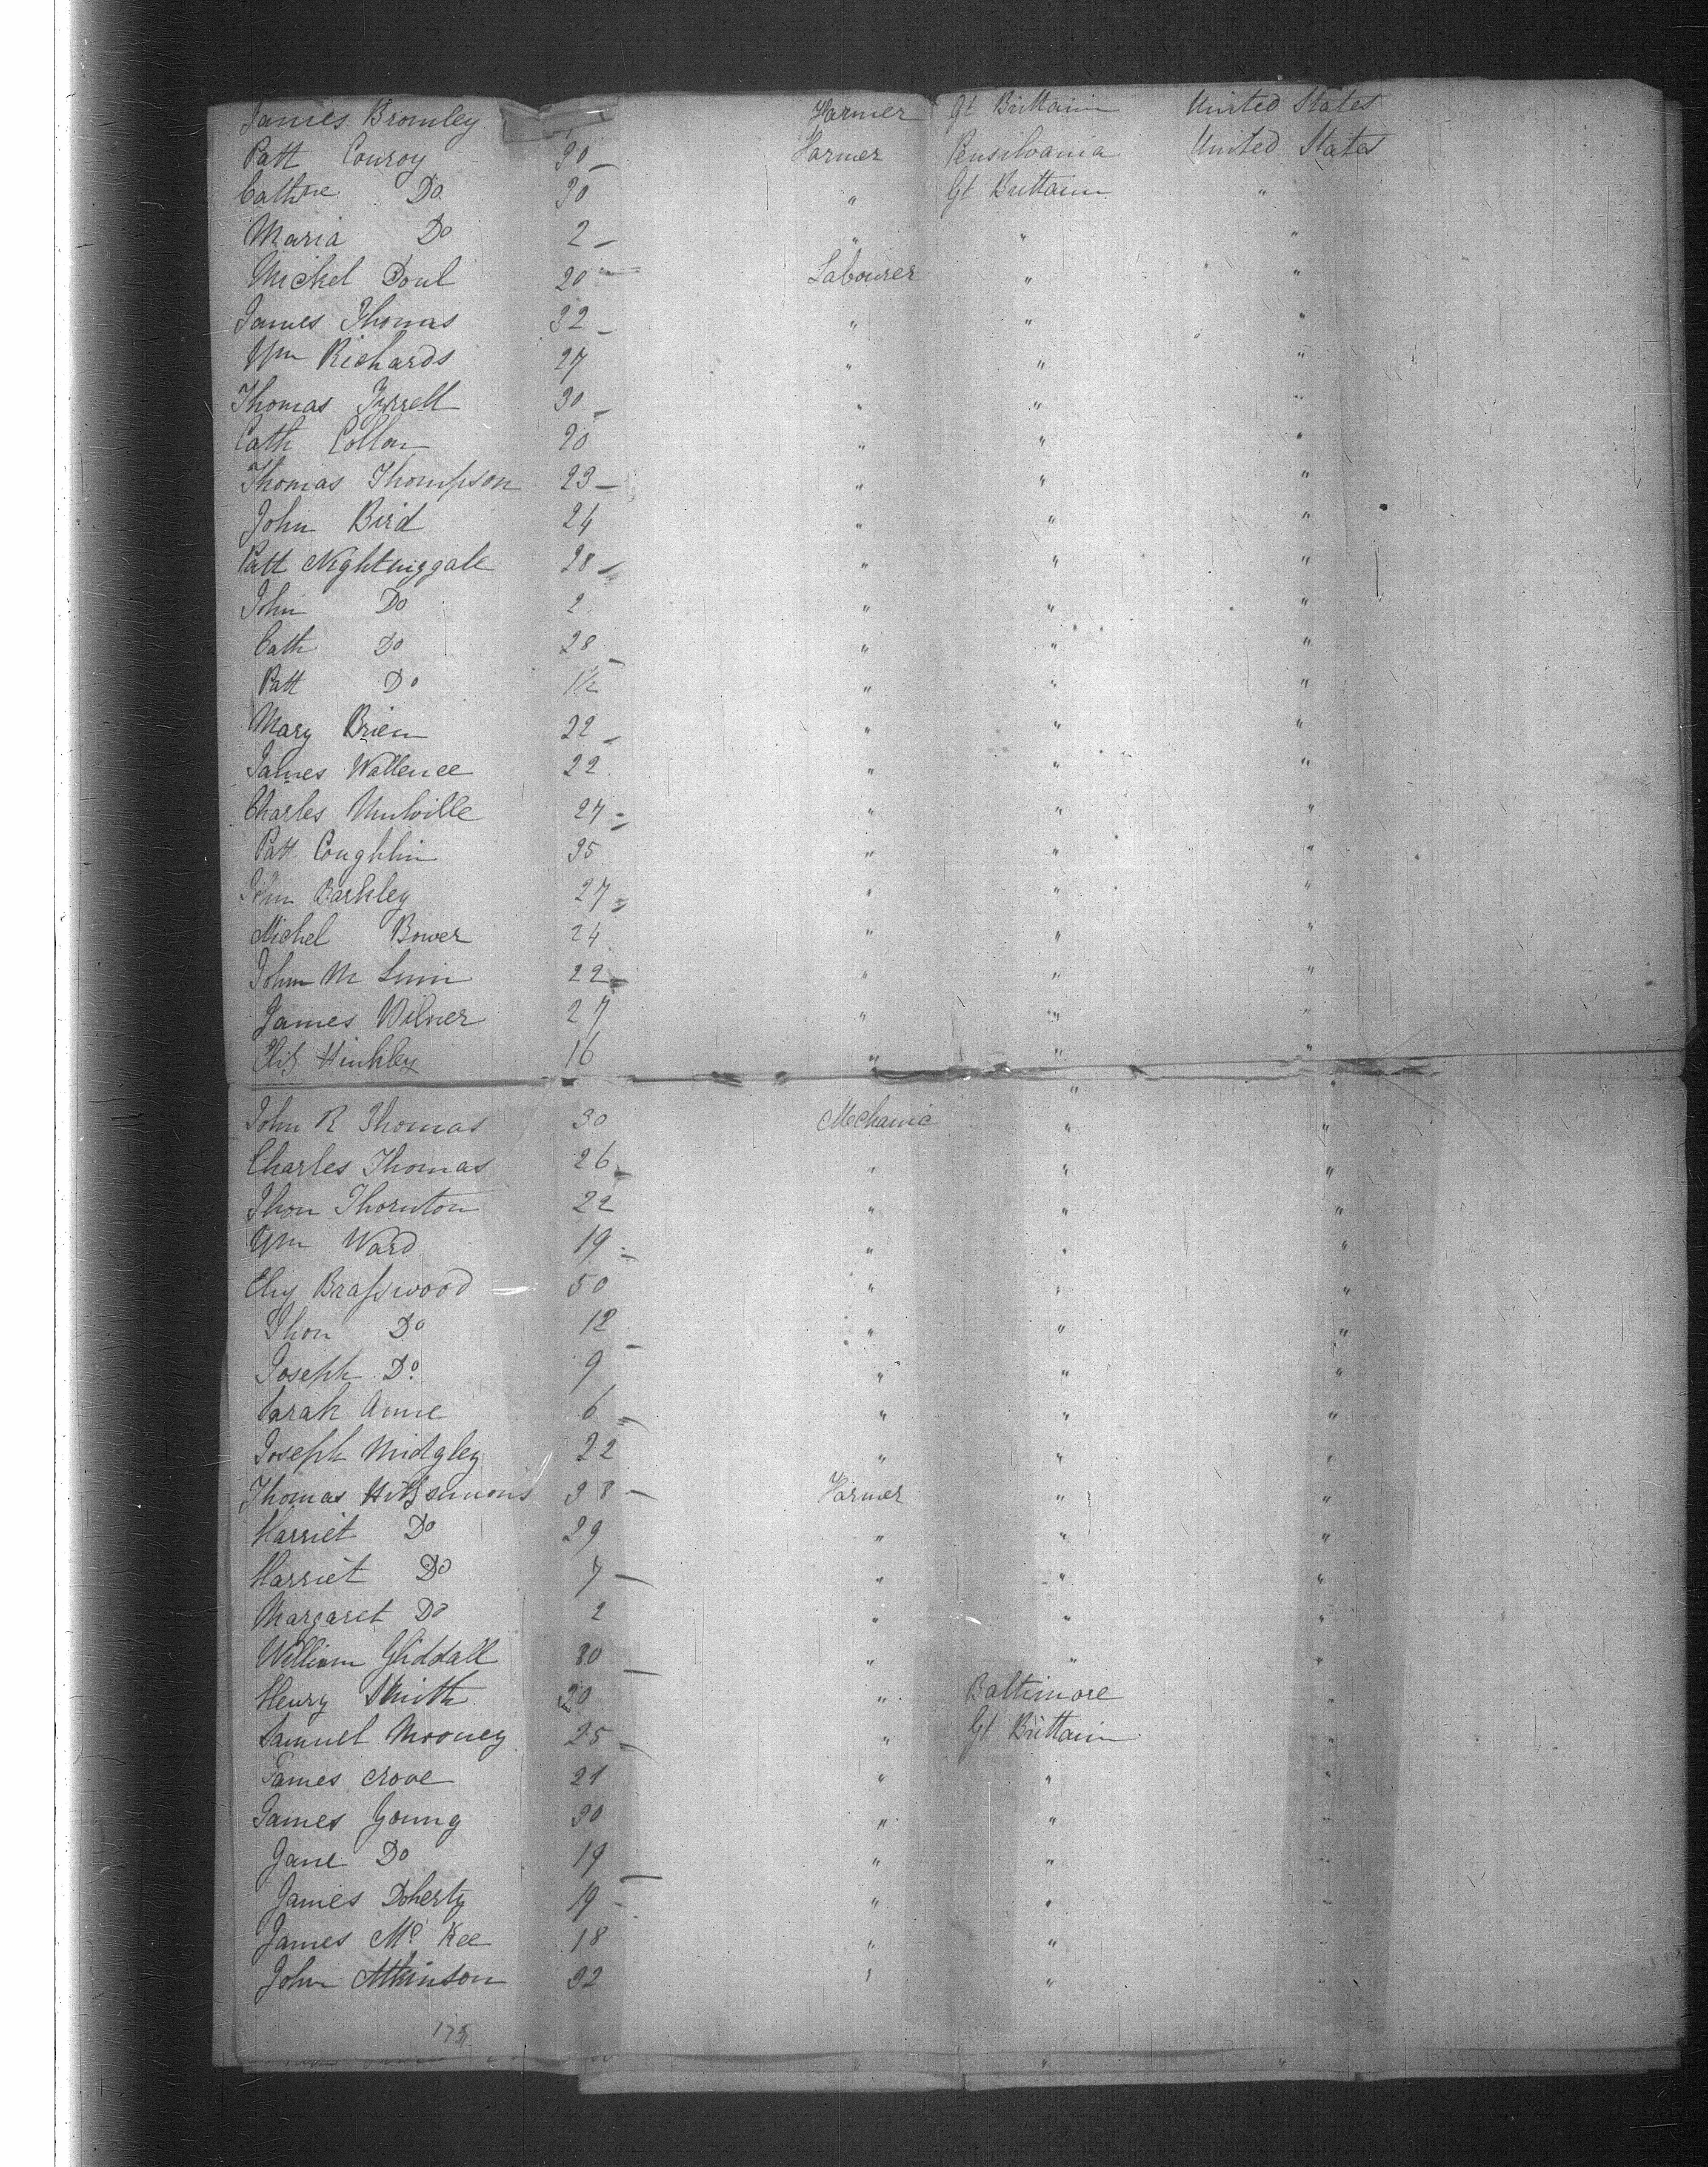 James Bromley Farmer Gt Brittain United States
Patt Conroy 30 Farmer Pensilvania United States
Cathne Do 30 " Gt Brittain "
Maria Do 2 " " "
Michel Doul 20 Labourer " "
James Thomas 32 " " "
Wm Richards 27 " " "
Thomas Tyrrell 30 " " "
Cath Collan 20 " " "
Thomas Thompson 23 " " "
John Bird 24 " " "
Patt Nightniggale 28 " " "
John Do 2 " " "
Cath Do 28 " " "
Patt Do 1½ " " "
Mary Brien 22 " " "
James Wallence 22 " " "
Charles Mulville 27 " " "
Patt Coughlin 35 " " "
John Barkley 27 " " "
Michel Bower 24 " " "
John M 22 " " "
James Wilner 27 " " "
Eliz Hinkley 16 " " "
" "
John R Thomas 30 Mechanic " "
Charles Thomas 26 " " "
Jhon Thornton 22 " " "
Wm Ward 19 " " "
Eliz Brasswood 50 " " "
Jhon Do 12 " " "
Joseph Do 9 " " "
Sarah Anne 6 " " "
Joseph Midgley 22 " " "
Thomas Hitzsimons 38 Farmer " "
Harriet Do 29 " " "
Harriet Do 7 " " "
Margaret Do 2 " " "
William Gliddall 30 " " "
Henry Smith 20 " Baltimore "
Samuel Mooney 25 " Gt Brittain "
James Crove 21 " " "
James Young 30 " " "
Jane Do 19 " " "
James Doherty 19 " " "
James Mc Kee 18 " " "
John Atkinson 32 " " "
175